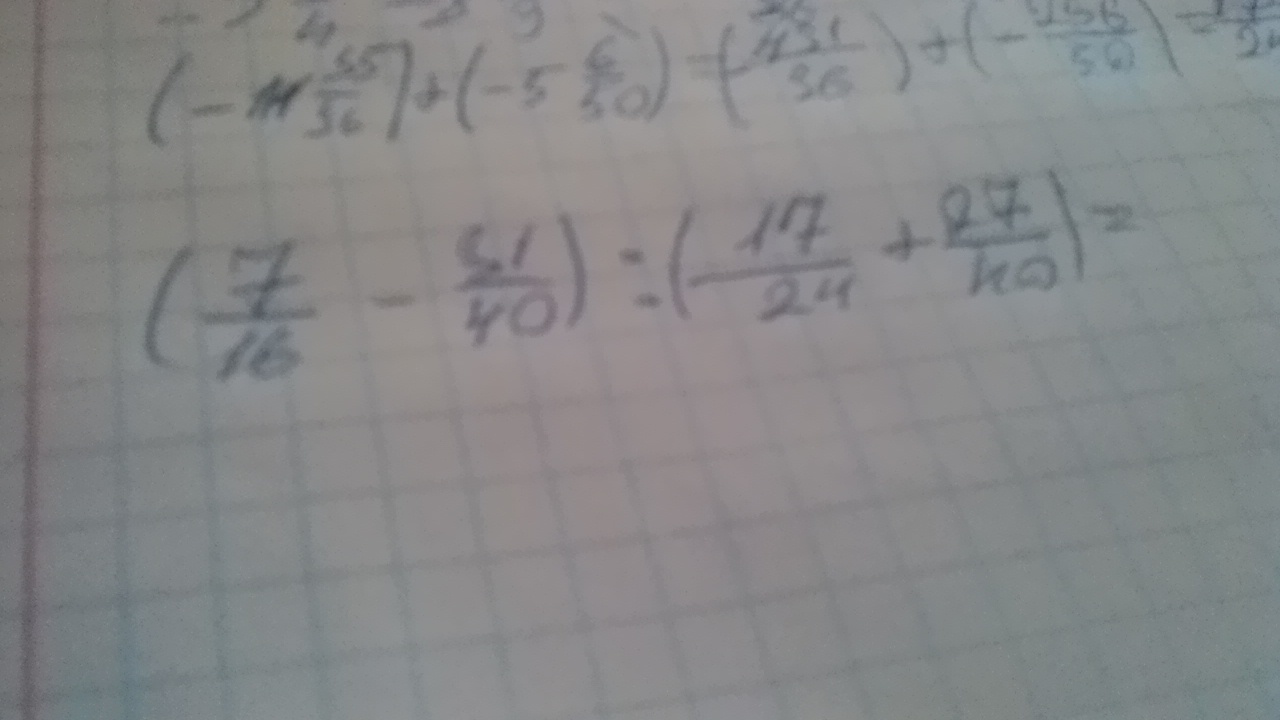 (-11 35/36) + (-5 6/50) = (- 431/36) + (- 256/50) =
(7/16 - 31/40) : (- 17/24 + 27/40) =